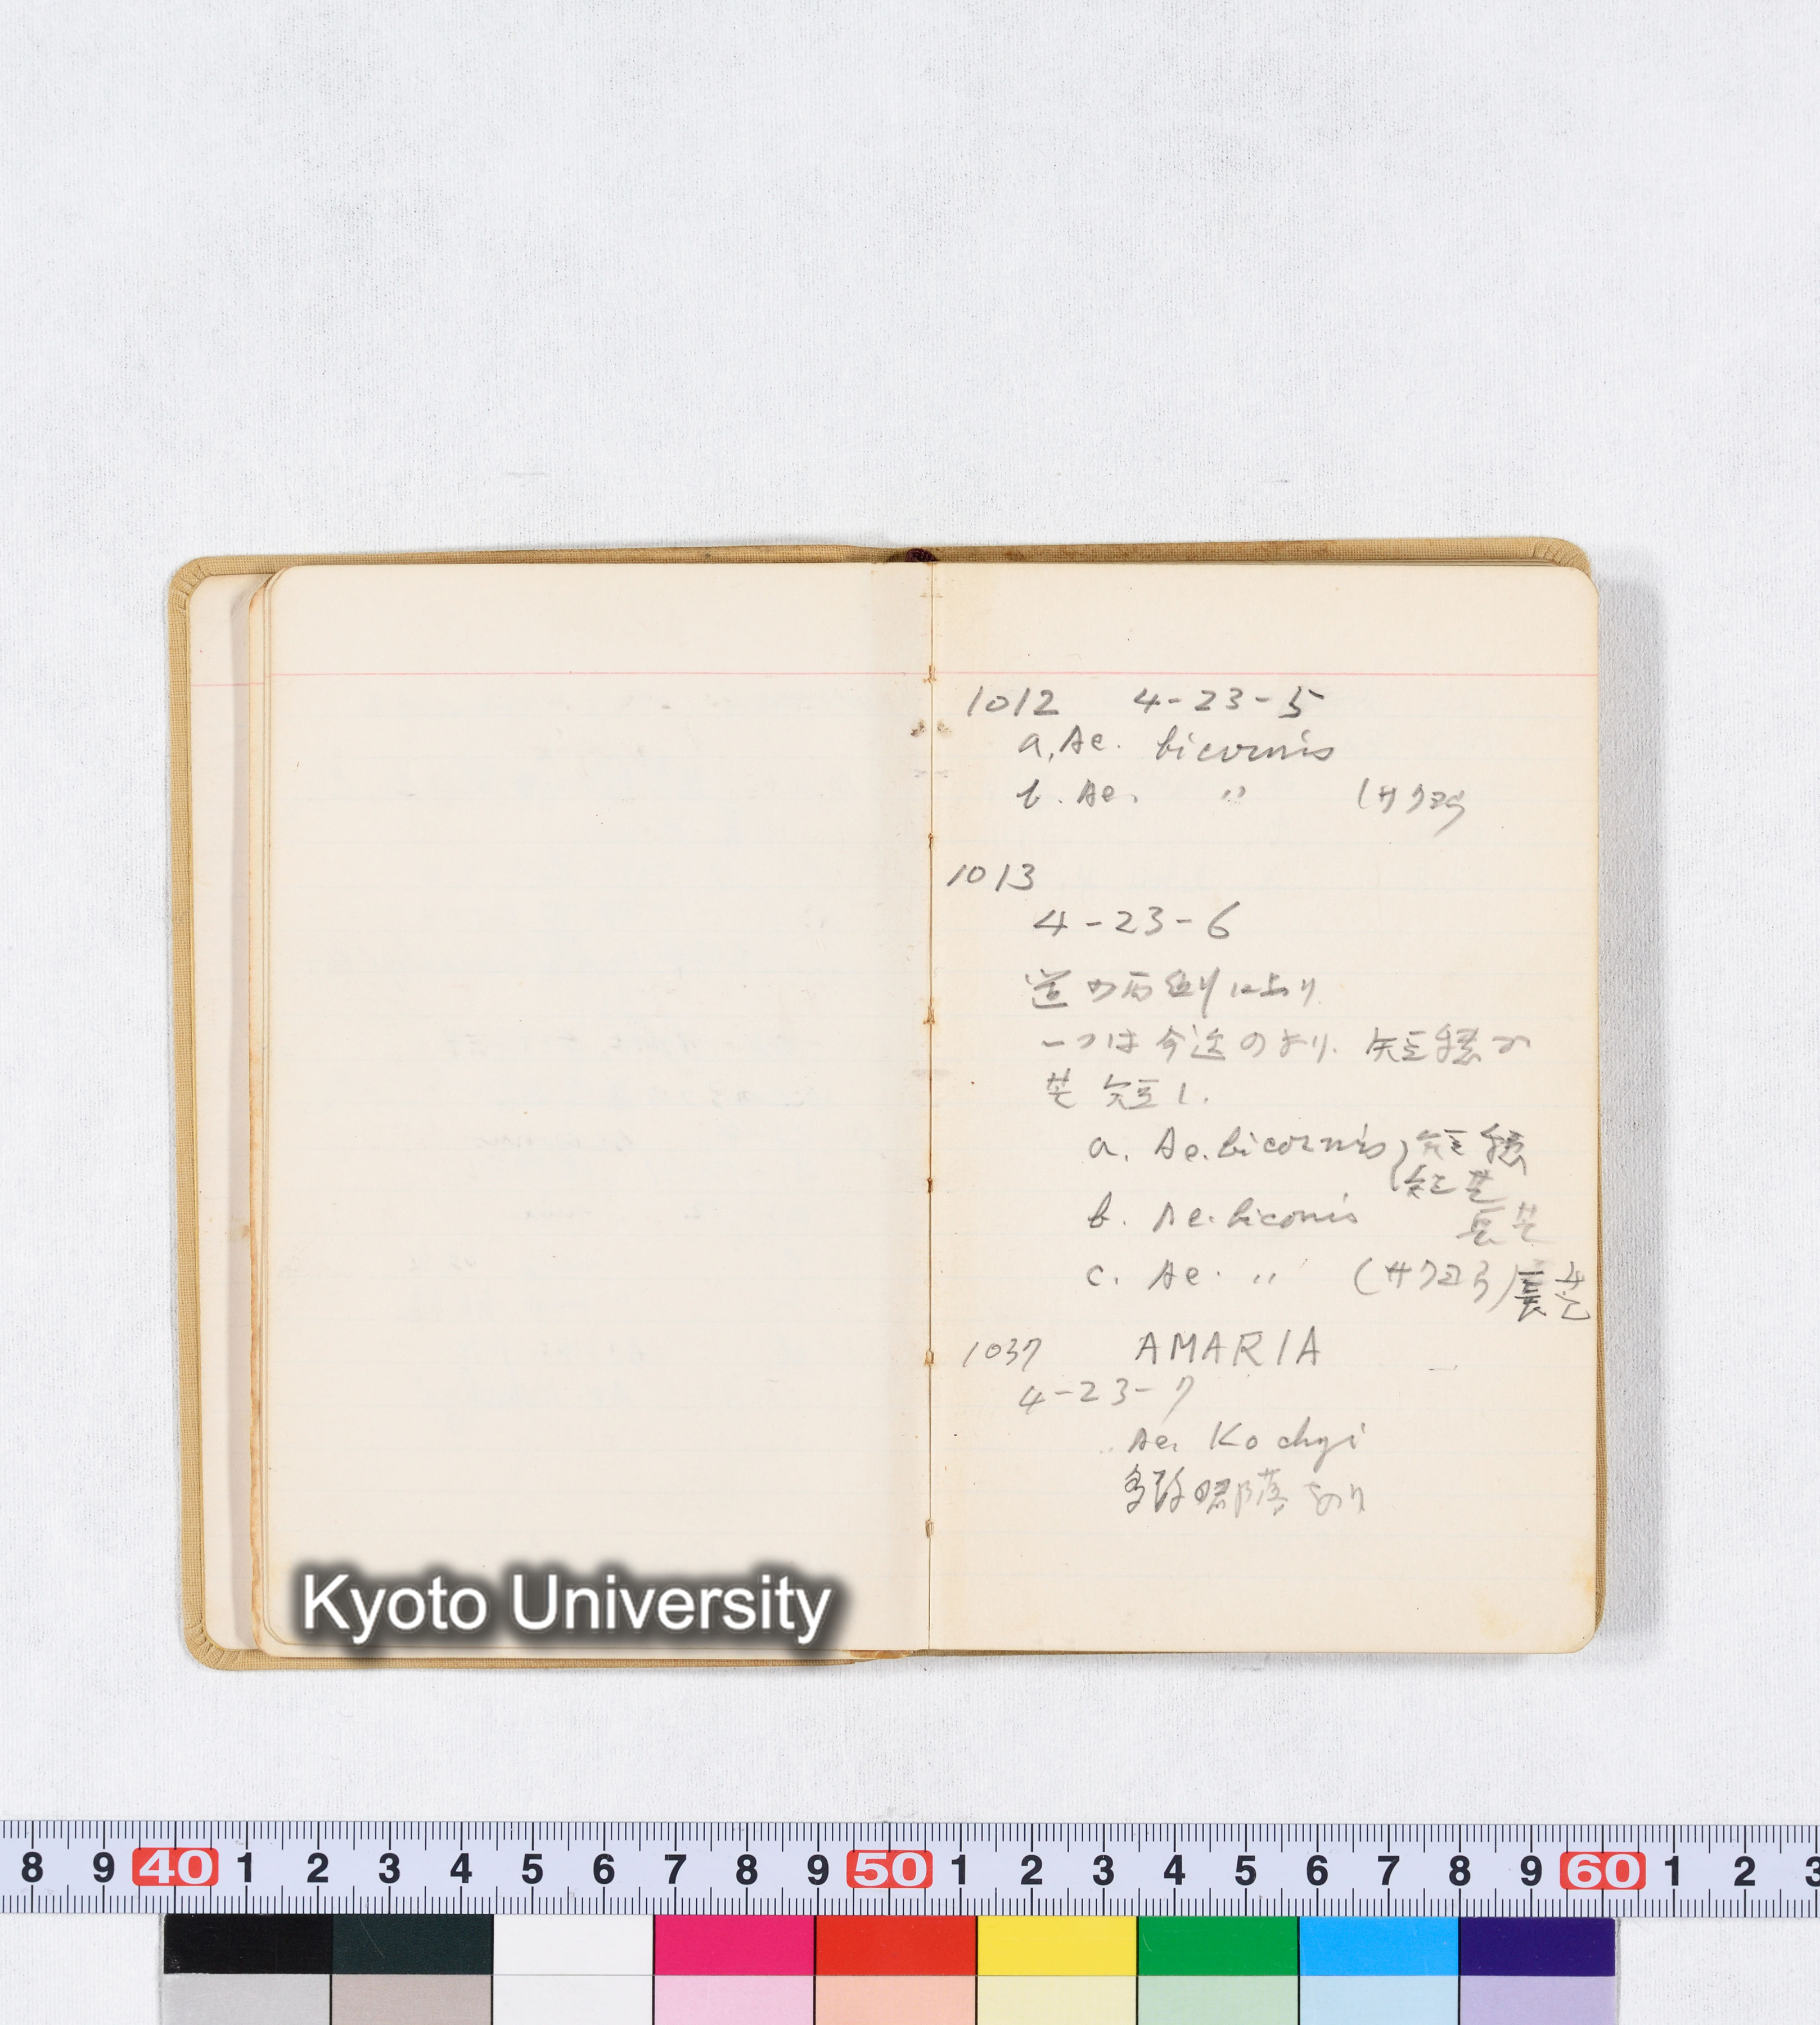 1012 4-23-5
a. Ae. bicornis
b. Ae. 〃 (サクヨウ
1013
4-23-6
道の両側にあり
一つは今迄のより 短穂で
芒短し.
a. Ae. bicornis 短穂
短芒
b. Ae. biconis 長芒
c. Ae. 〃 (サクヨウ) 長芒
1037 AMARIA
4-23-7
Ae. Kochyi
多数 部落あり
Kyoto University
8 9 40 1 2 3 4 5 6 7 8 9 50 1 2 3 4 5 6 7 8 9 60 1 2 3